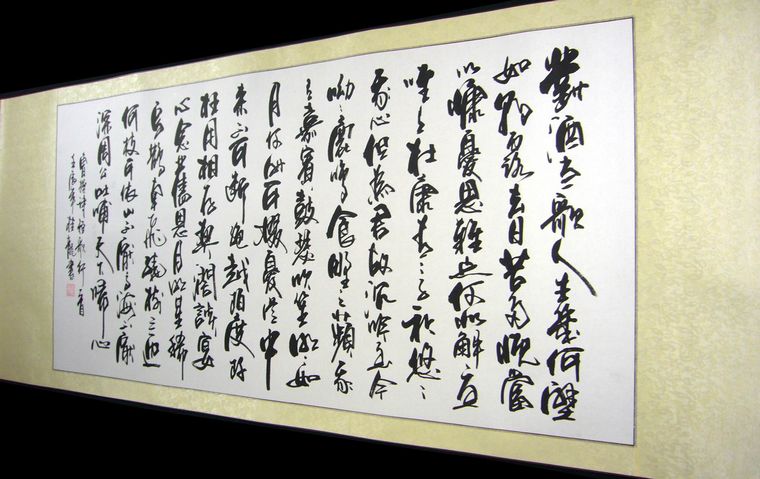 對酒當歌人生幾何譬
如朝露去日苦多慨當
以慷憂思難忘何以解憂
唯有杜康青々子衿悠々
我心但為君故沉吟至今
呦々鹿鳴食野之蘋我
有嘉賓鼓瑟吹笙明々如
月何時可掇憂從中
來不可斷絕越陌度阡
枉用相存契闊談宴
心念舊恩月明星稀
烏鵲南飛繞樹三匝
何枝可依山不厭高海不厭
深周公吐哺天下歸心
曹操詩短歌行一首
年桂龍書